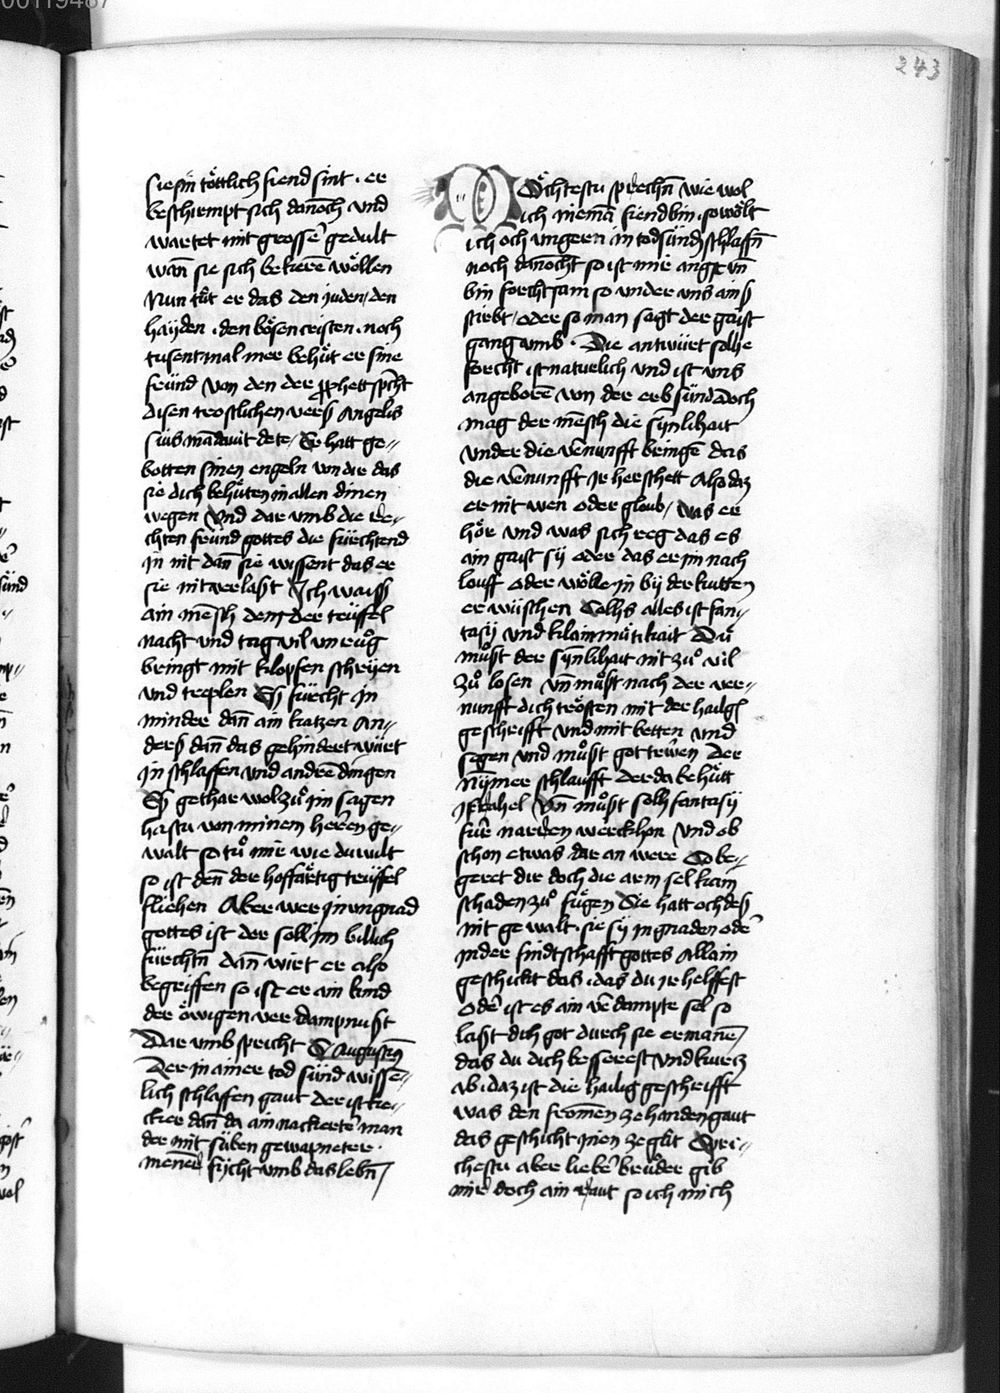 00119487
243
sie sin töttlich fiend sint . er
beschirmpt sich dañoch vnd
wartet mit grosser̄ gedult
wañ sie sich bekerē wöllen
Nun tůt er das den juden / den
hayden . den bösen cristen . noch
tusentmal mer behüt er sine
freünd von den der prophett spricht
disen trostlichen vers Angelis
suis mandauit de te / Er hatt ge-
botten sinen engeln von dir das
sie dich behüten in allen dinen
wegen Vnd dar vmb die re-
chten freünd gottes die fürchtend
in nit dañ sie wissent das er
sie nit verlaßt Ich waiß
ain mēsch dem der teüffel
nacht vnd tag vil vnrůg
bringt mit klopfen schreyen
vnd treplen Es fürcht in
minder dañ ain katzen An-
ders dañ das gehindert würt
in schlaffen vnd andrē dingen
Es gethar wol zů im sagen
hastu von minem herren ge-
walt so tů mir wie du wilt
so ist deñ der hoffärtig teüffel
fliehen Aber wer in vngnad
gottes ist der soll im billich
fürchtñ dañ wirt er also
begriffen so ist er ain kind
der öwigen verdampnußt
Dar vmb spricht S Augustinus
Der in ainer tod sünd wissē-
lich schlaffen gaut der ist kie-
cker dañ da ain nackterter man
der mit süben gewapneter
menēr ficht vmb das lebñ /
MÖchtestu sprechñ wie wol
ich niemā fiend bin . so wölt
ich och vngern in tod sünd schlaffñ
noch dañocht so ist mir angst vñ
bin forchtsam so vnder vns ains
stirbt / oder so man sagt der gaist
gang vmb . Die antwürt solhe
forcht ist naturlich vnd ist vns
angeborē von der erbsünd Doch
mag der mēsch die sÿnlihait
vnder die vēnunfft bringē das
die vēnunfft Jr herschett Also daz
er nit wen oder gloub / was er
hör vnd was sich reg das es
ain gaist sy oder das er im nach
louff oder wölle in by der kutten
erwüschen Solhs alles ist fan-
tasy vnd klainmütikait Du
můßt der sÿnlihait nit zů vil
zů losen vñ můßt nach der ver-
nunfft dich trösten mit der hailgē
geschrifft vnd mit betten vnd
segen vnd můßt got trewen Der
nÿmer schlaufft der da behütt
israhel Vñ můßt solh fantasy
für narren werck hon Vnd ob
schon etwas dar an were So be-
geret dir doch die arm sel kain
schaden zů fügen Sie hatt och des
nit gewalt . sie sy in gnaden odē
in der findtschafft gottes Allain
geschicht das . das du ir helffest
odēr ist es ain vēdampte sel so
laßt dich got durch sie ermanē /
das du dich besserest Vnd kurcz
ab . daz ist die hailig geschrifft
was den fromen ze handen gaut
das geschicht inen ze gůt Spri-
chestu aber liebēr brůder gib
mir doch ain raut so ich mich